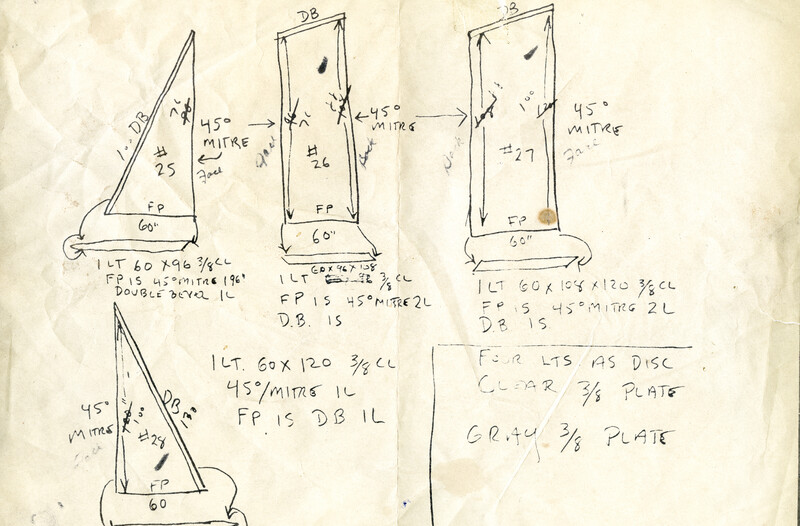 100 DB
45°
MITRE
Face
#
25
FP
60"
1 LT 60 X 96 3/8 CL
FP IS 45° MITRE 196"
DOUBLE BEVEL 1L
DB
45°
MITRE
Face
Back
#
26
FP
60"
60 X 96 X 108
1 LT 3/8 CL
FP IS 45° MITRE 2L
D.B. 1S
DB
100
120
45°
MITRE
Back
Face
#27
FP
60"
1 LT 60 X 108 X 120 3/8 CL
FP IS 45° MITRE 2L
D.B 1S
45°
MITRE
Face
100
DB
130
#28
FP
60
1 LT. 60 X 120 3/8 CL
45°/MITRE 1L
FP IS DB 1L
FOUR LTS. AS DISC
CLEAR 3/8 PLATE
GRAY 3/8 PLATE